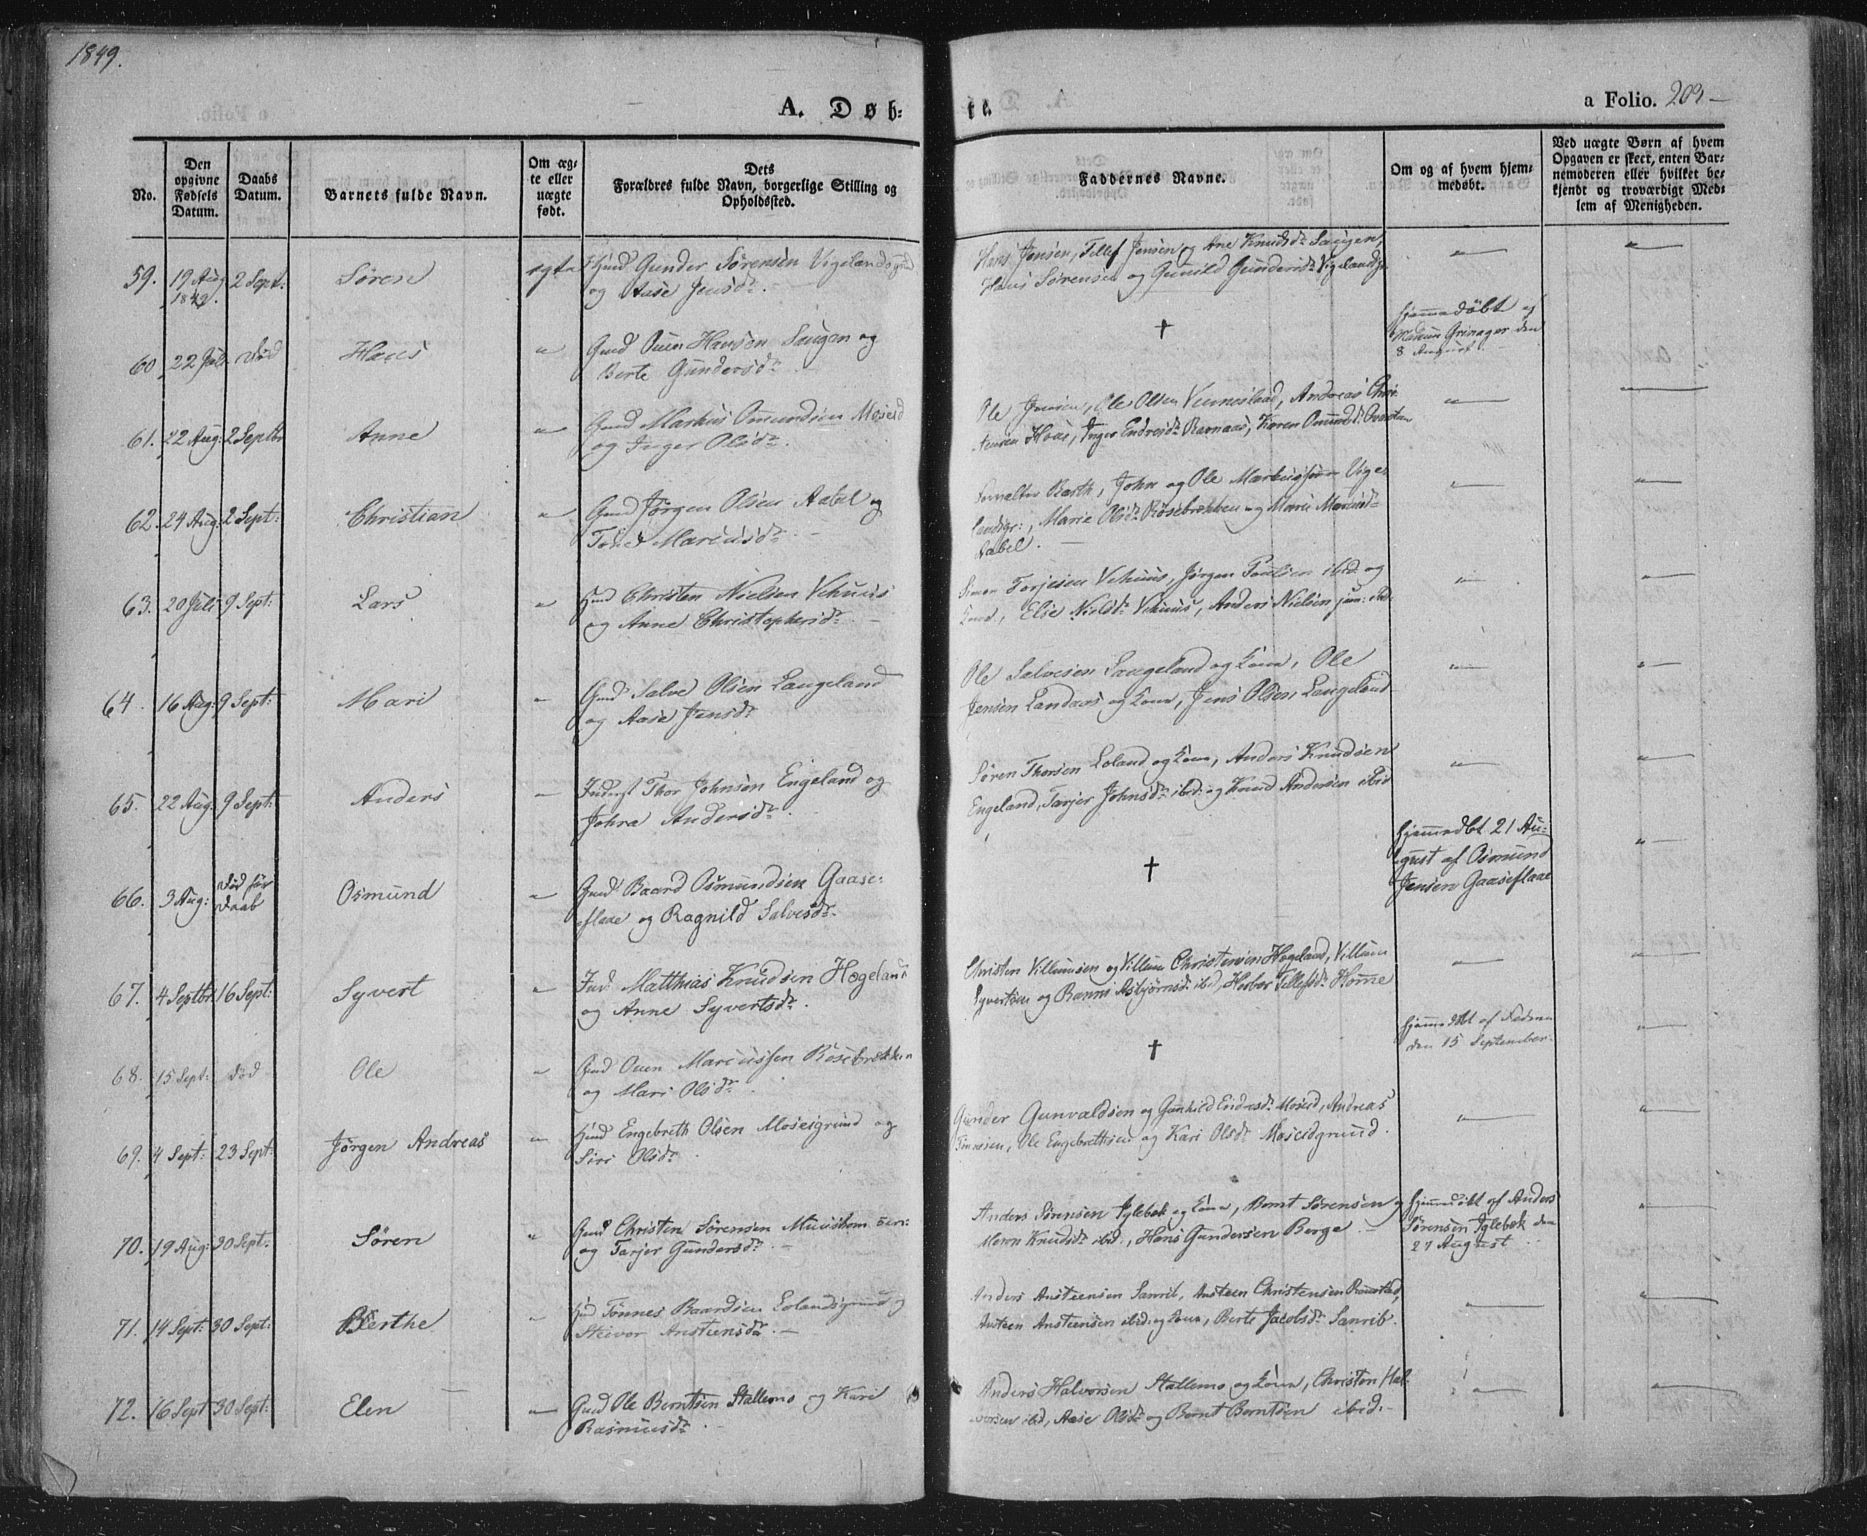 1849.
A. Døb-
te.
a Folio. 203
No.
Den opgivne Fødsels Datum.
Daabs Datum.
Barnets fulde Navn.
Om ægte eller uægte født.
Dets Forældres fulde Navn, borgerlige Stilling og Opholdssted.
Faddernes Navne.
Om og af hvem hjemmedøbt.
Ved uægte Børn af hvem Opgaven er skeet, enten Barnemoderen eller hvilket bekjendt og troværdigt Medlem af Menigheden.
59. 19 Aug 1849. 2 Sept: Søren ægte Hmd Gunder Sørensen Vigeland
og Aase Jensdr. -
Hans Jensen, Tellef Jensen og Ane Knudsdr Saugen,
Hans Sørensen og Gunild Gundersdr Vigeland
60 22 Juli død Hans " Gmd Ouen Hansen Saugen og
Berte Gundersdr
†
hjemmedøbt af
Madam Grinager den
8 August.
61. 22 Aug: 2 Septbr Anne " Gmd Markus Omundsen Moseid
og Inger Olsdr.
Ole Jensen, Ole Olsen Vennestad, Andreas Chri-
stensen Hoas, Inger Endresdr Ravnaas, Karen Omundsdr
62. 24 Aug: 2 Sept: Christian " Gmd Jørgen Olsen Aabel og
Tone Mareusdr. -
Barth, John og Ole Markussen Vige-
landsgr:, Marie Olsdr Rosebrekken og Marie
Aabel. -
63. 20 Juli 9 Sept: Lars " Hmd Christen Nielsen Vehuus
og Anne Christophersdr. -
Simon Torjesen Vehuus, Jørgen Poulsen ibid. og
Elie Nielsdr Vehuus, Anders Nielsen jun: ibid.
64. 16 Aug: 9 Sept: Mari " Gmd Salve Olsen Langeland
og Aase Jensdr
Ole Salvesen Langeland og Kone, Ole
Jensen Landaas og Kone, Jens Olsen Langeland
65. 22 Aug: 9 Sept: Anders - Inderst Thor Johnsen Engeland og
Johra Andersdr.
Søren Thorsen Loland og Kone, Anders Knudsen
Engeland, Tarjer Johnsdr ibid: og Knud Andersen ibid
66. 3 Aug: død før Daab Osmund " Gmd Baard Osmundsen Gaase-
flaae og Ragnild Salvesdr.
†
hjemmedbt 21 Au-
gust af Osmund
Jensen Gaaseflaae
67. 4 Septbr: 16 Sept: Syvert " Ind Matthias Knudsen Hægeland
og Anne Syvertsdr.
Christen Villumsen og Villum Christensen Hægeland, Villum
Syvertsen og Ranni Asbjørnsdr ibid, Herbor Tellefsdr Homme
68. 15 Sept: død Ole " Gmd Ouen Mareussen Rosebrekken
og Mari Olsdr.
†
hjemmedbt af Faderen
den 15 September.
69. 4 Sept: 23 Sept: Jørgen Andreas " Hmd Engebreth Olsen Moseigrund og
Siri Olsdr.
Gunder Gunvaldsen og Gunhild Endresdr Moseid, Andreas
Tønnesen, Ole Engebrethsen og Kari Olsdr Moseidgrund.
70. 19 Aug: 30 Sept: Søren " Gmd Christen Sørensen
og Tarjer Gundersdr. -
Anders Sørensen Iglebæk og Kone, Bernt Sørensen og
Maren Knudsdr ibid., Hans Gundersen Berge -
hjemmedøbt af Anders
Sørensen Iglebæk den
27 August
71. 14 Sept: 30 Sept: Berthe - Hmd Tønnes Baardsen Lolandsgrund og
Steivor Anstensdr. -
Anders Anstensen Sanrib, Ansteen Christensen
Ansteen Ansteensen ibid: og Kone, Berte Jacobsdr Sanrib.
72. 16 Sept 30 Sept: Elen - Gmd Ole Berntsen Stallemo og Kari
Rasmusdr. -
Anders Halvorsen Stallemo og Kone, Christen Hal-
vorsen ibid, Aase Olsdr og Bernt Berntsen ibid. -